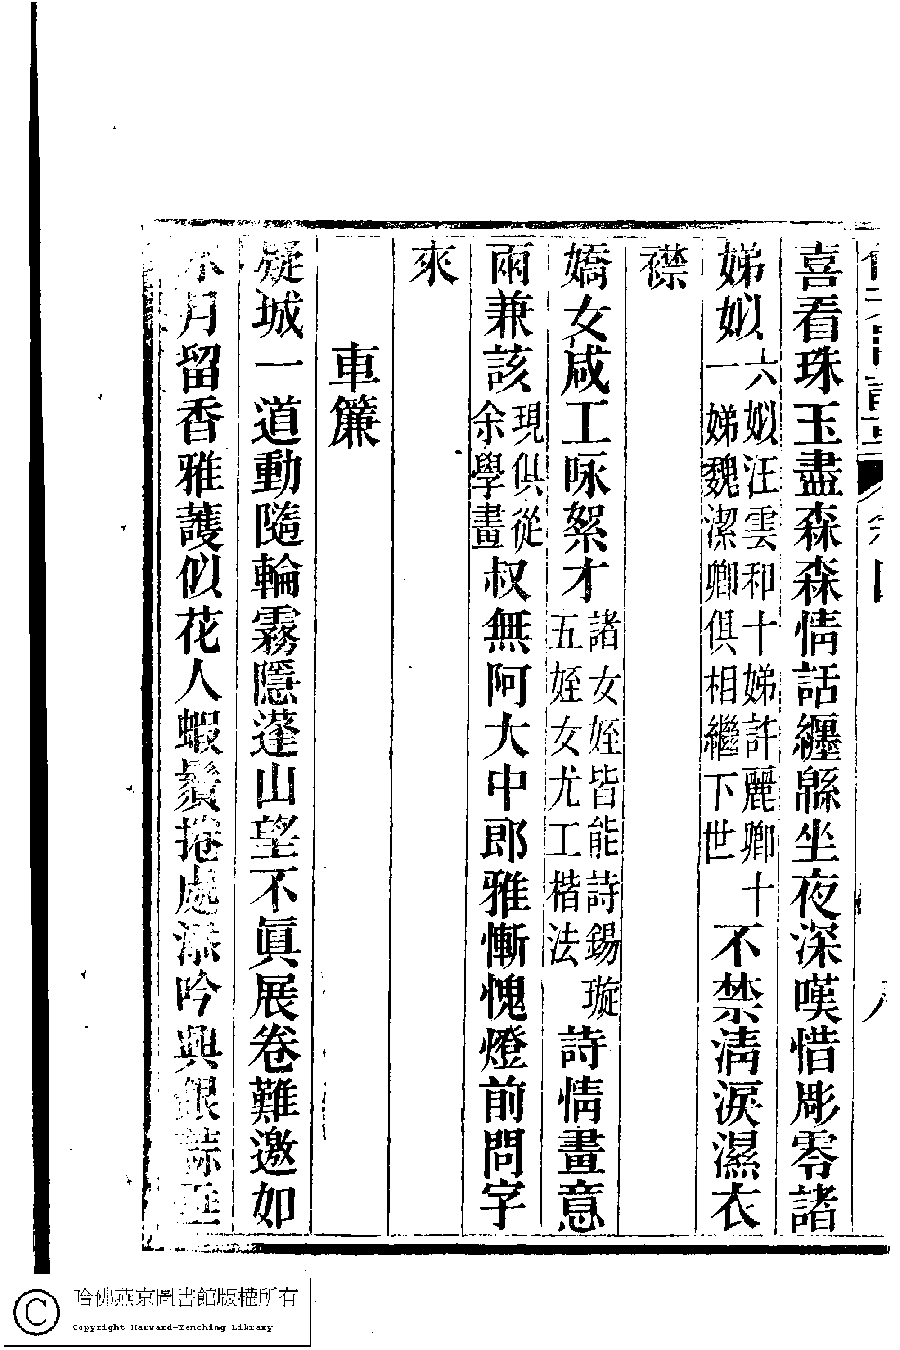 喜看珠玉盡森森情話纏緜坐夜深嘆惜彫零諸
娣姒六姒汪雲和十娣許麗卿十一娣魏潔卿俱相繼下世不禁淸淚濕衣
襟
嬌女咸工咏絮才諸女姪皆能詩錫璇五姪女尤工楷法詩情畫意
兩兼該現俱從余學畫叔無阿大中郎雅慚愧燈前問字
來
車簾
疑城一道動隨輪霧隱蓬山望不眞展卷難邀如
水月留香雅護似花人蝦鬚捲處添吟興銀蒜垂
哈佛燕京圖書館版權所有
Copyright Harvard-Yenching Library